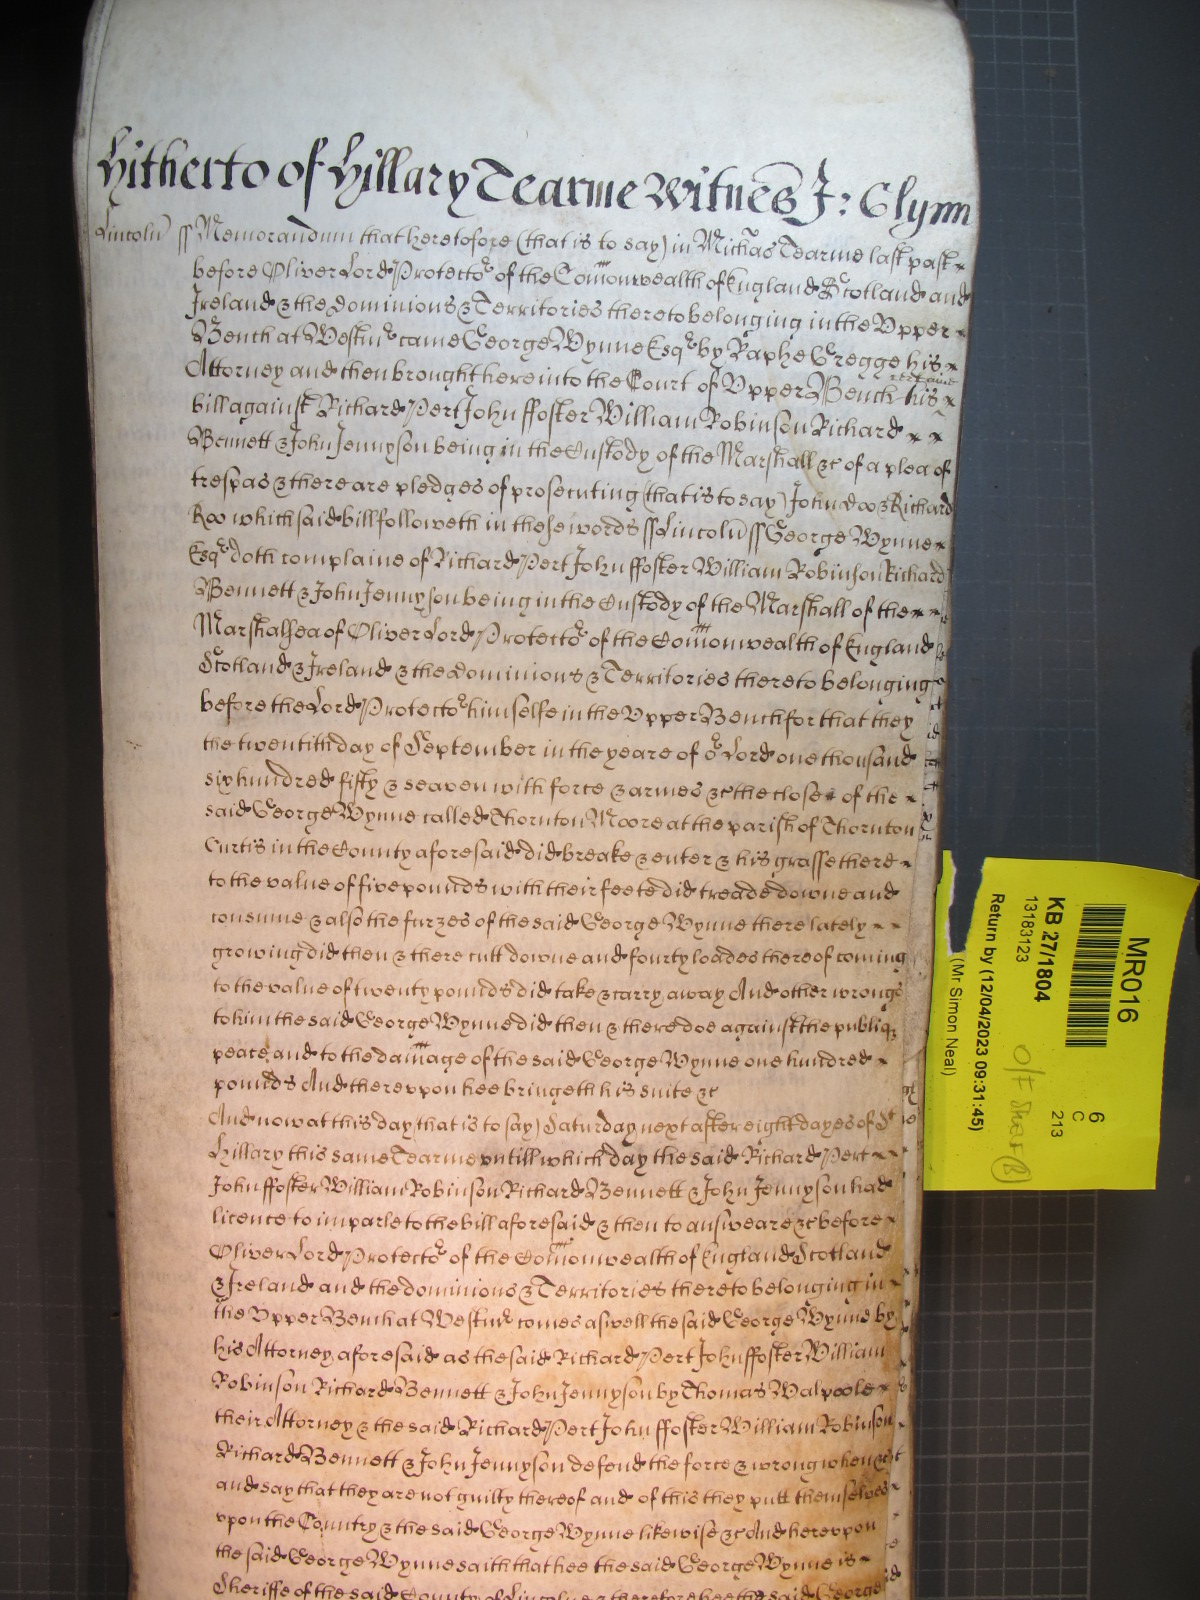 Hitherto of Hillary Tearme Witnes J: Glynn
Lincoln ss Memorandum that heretofore (that is to say) in Michas Tearme last past
before Oliver Lord Protector of the Comonwealth of England Scotland and
Ireland & the dominions & Territories thereto belonging in the Vpper
Bench at Westmr came George Wynne Esqr by Raphe Gregge his
Attorney and then brought here into the Court of Vpper Bench his
bill against Richard Pert John ffoster William Robinson Richard
Bennett & John Jennyson being in the Custody of the Marshall &c of a plea of
trespas & there are pledges of prosecuting (that is to say) John doo & Richard
Roo which said bill followeth in these words ss Lincoln ss George Wynne
Esqr doth complaine of Richard Pert John ffoster William Robinson Richard
Bennett & John Jennyson being in the Custody of the Marshall of the
Marshalsea of Oliver Lord Protector of the Comonwealth of England
Scotland & Ireland & the dominions & Territories thereto belonging
before the Lord Protector himselfe in the Vpper Bench for that they
the twentith day of September in the yeare of or Lord one thousand
six hundred fifty & seaven with force & armes &c the close of the
said George Wynne called Thornton Moore at the parish of Thornton
Curtis in the County aforesaid did breake & enter & his grasse there
to the value of five pounds with their feete did treade downe and
consume & also the furzes of the said George Wynne there lately
growing did then & there cutt downe and fourty loades thereof coming
to the value of twenty pounds did take & carry away And other wrongs
to him the said George Wynne did then & there doe against the publiq
peace and to the damage of the said George Wynne one hundred
pounds And therevpon hee bringeth his suite &c
And now at this day (that is to say) Saturday next after eight dayes of St
Hillary this same Tearme vntill which day the said Richard Pert
John ffoster William Robinson Richard Bennett & John Jennyson had
licence to imparle to the bill aforesaid & then to answeare &c before
Oliver Lord Protector of the Comonwealth of England Scotland
& Ireland and the dominions & Territories thereto belonging in
the Vpper Bench at Westmr comes aswell the said George Wynne by
his Attorney aforesaid as the said Richard Pert John ffoster William
Robinson Richard Bennett & John Jennyson by Thomas Walpoole
their Attorney & the said Richard Pert John ffoster William Robinson
Richard Bennett & John Jennyson defend the force & wrong when &c
and say that they are not guilty thereof and of this they putt themselves
vpon the Country & the said George Wynne likewise &c And herevpon
the said George Wynne saith that hee the said George Wynne is
Sheriffe of the said County of Lincolne & therefore hee the said George
MR016
KB 27/1804
13183123
Return by (12/04/2023 09:31:45)
(Mr Simon Neal)
6
C
213